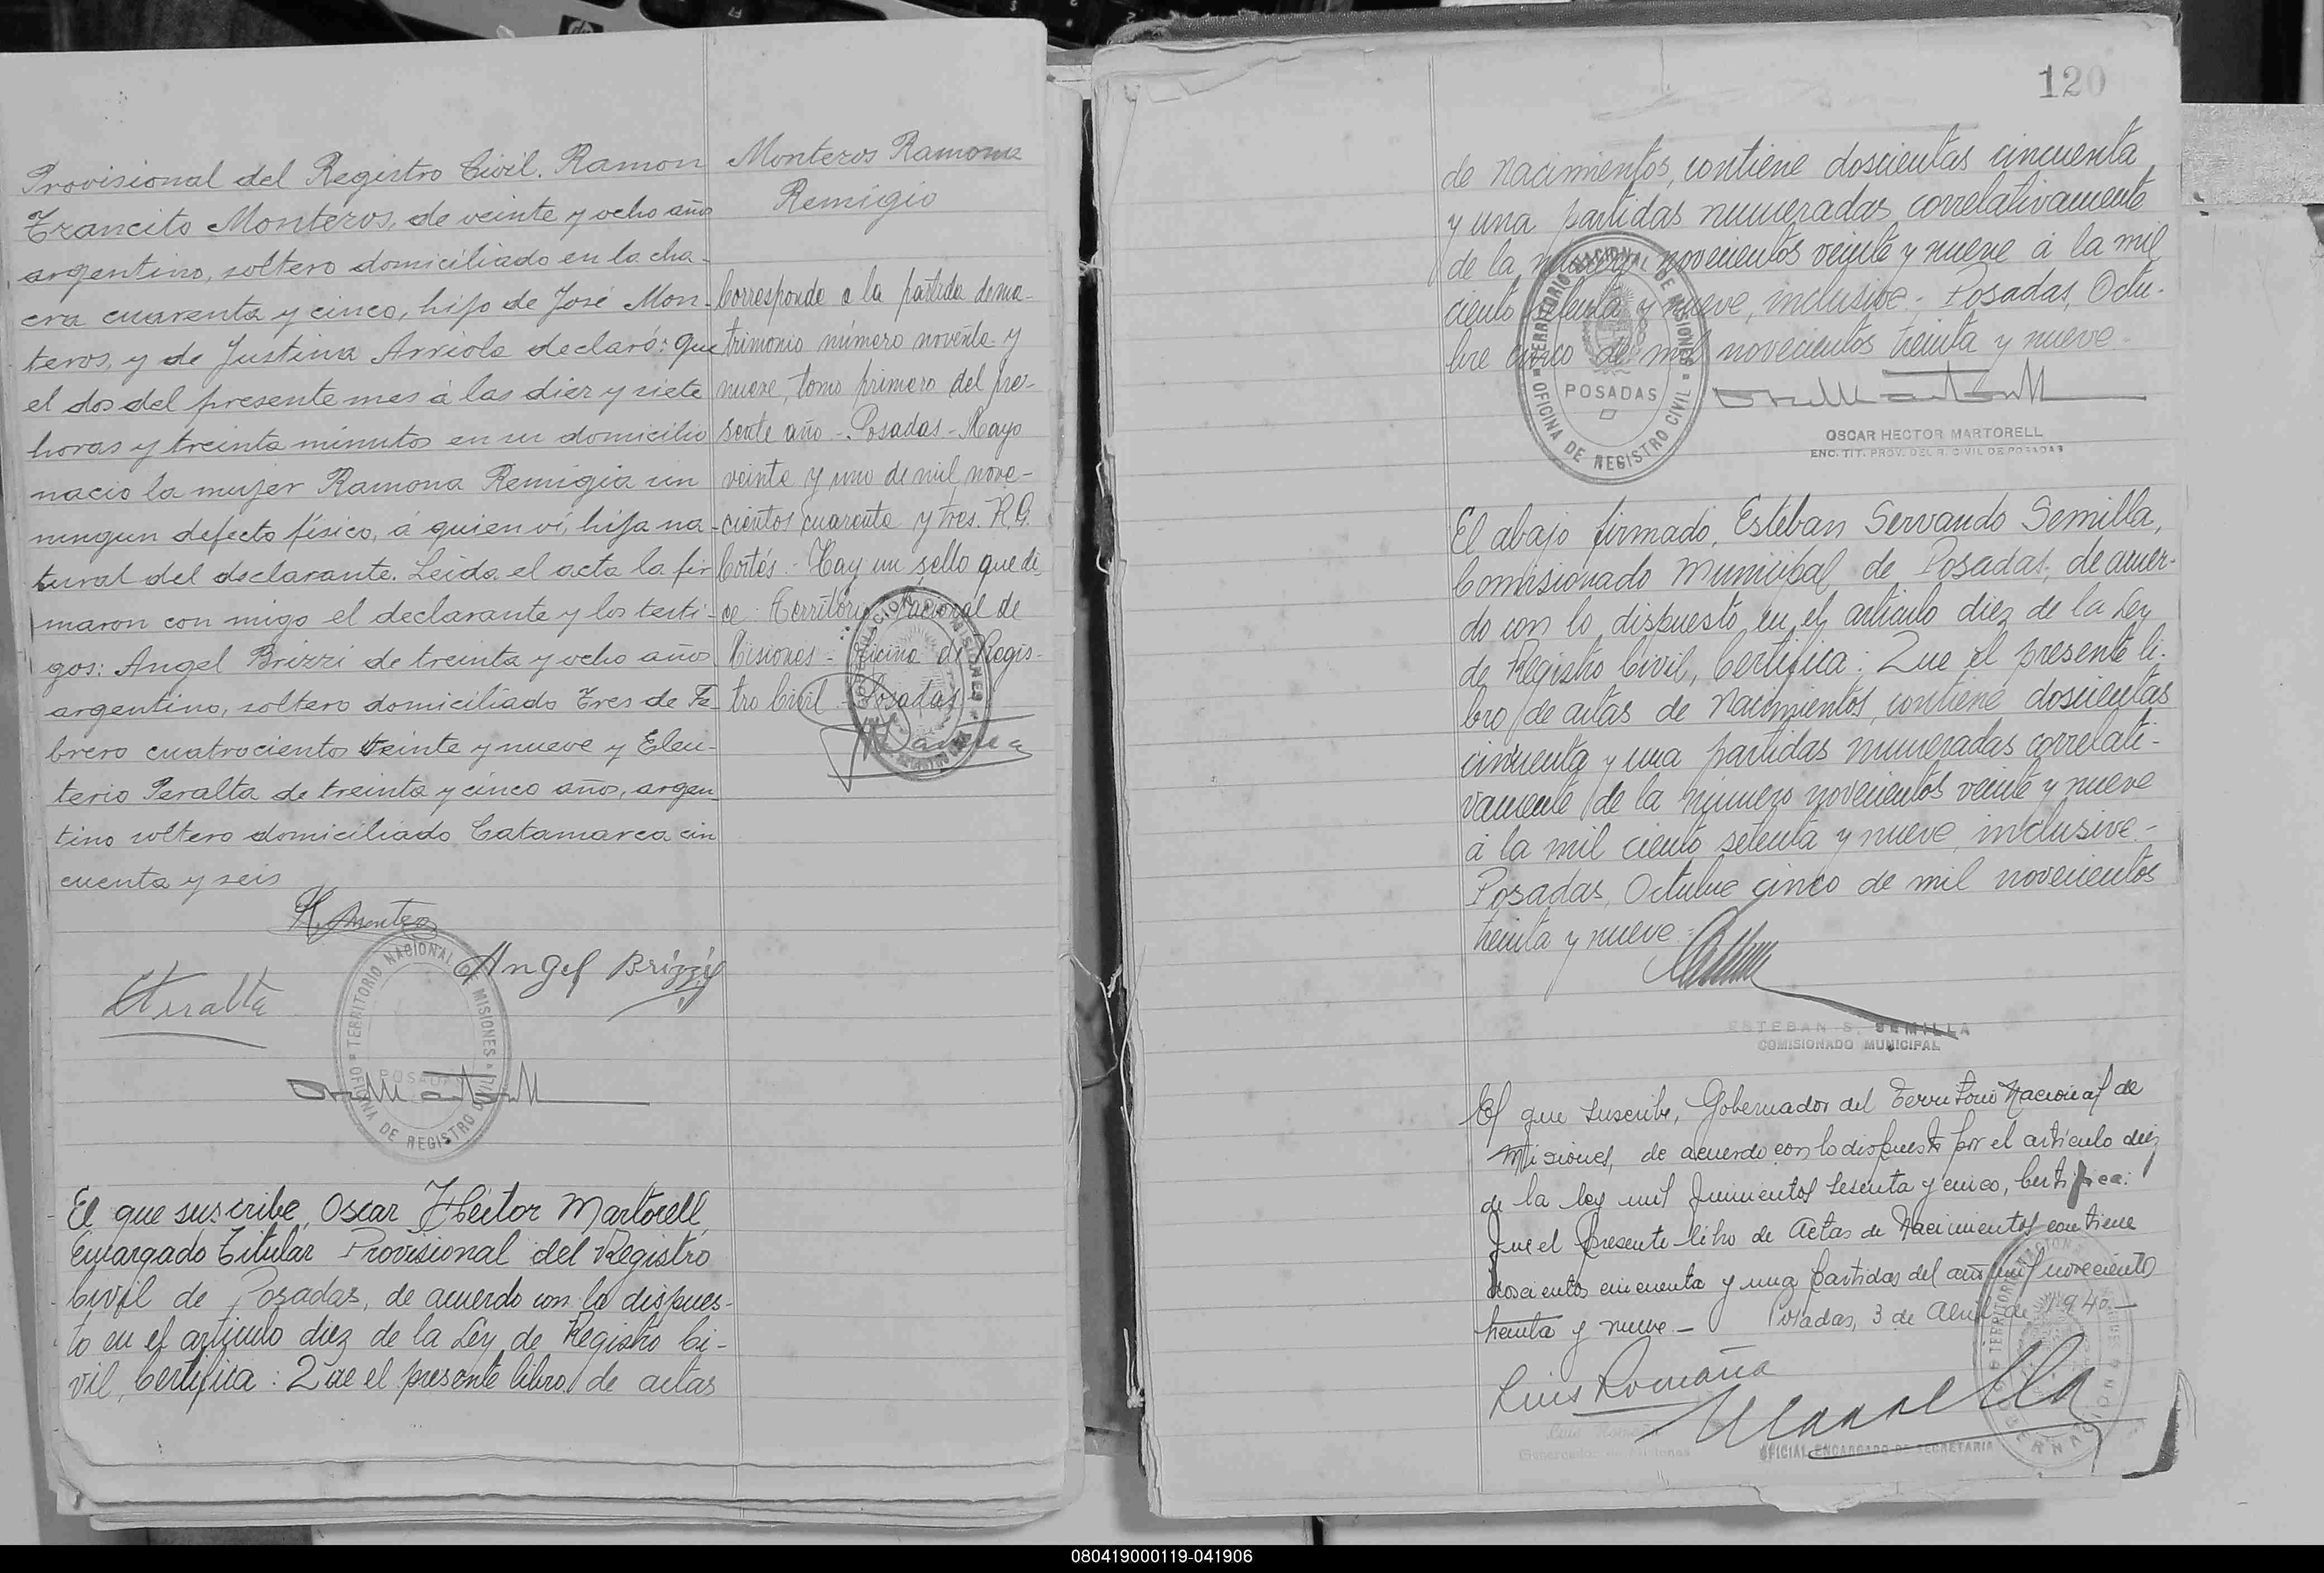 Provisional del Registro Civil. Ramon
Trancito Monteros, de veinte y ocho años
argentino, soltero domiciliado en la cha-
cra cuarenta y cinco, hijo de José Mon-
teros, y de Justina Arriola declaró: Que
el dos del presente mes á las diez y siete
horas y treinta minutos en su domicilio
nacio la mujer Ramona Remigia sin
ningun defecto físico, á quien ví, hija na-
tural del declarante. Leida el acta la fir
maron con migo el declarante y los testi-
gos: Angel Brizzi de treinta y ocho años
argentino, soltero domiciliado Tres de Fe
brero cuatrocientos veinte y nueve y Eleu-
terio Peralta de treinta y cinco años, argen
tino soltero domiciliado Catamarca cin
cuenta y seis
R. Monteros
Angel Brizzi
EPeralta
TERRITORIO NACIONAL DE MISIONES
POSADAS
OFICINA DE REGISTRO CIVIL
El que suscribe, Oscar Héctor Martorell,
Encargado Titular Provisional del Registro
Civil de Posadas, de acuerdo con lo dispues-
to en el artículo diez de la Ley de Registro Ci-
vil, Certifica: Que el presente libro de actas
Monteros Ramona
Remigio
Corresponde a la partida de ma-
trimonio número noventa y
nueve, tomo primero del pre-
sente año -. Posadas - Mayo
veinte y uno de mil nove-
cientos cuarenta y tres. R.G.
Cortés.- Hay un sello que di-
ce: Territorio Nacional de
Misiones - Oficina de Regis-
tro Civil - Posadas
120
de Nacimientos, contiene doscientas cincuenta
y una partidas numeradas correlativamente
de la número novecientos veinte y nueve á la mil
ciento setenta y nueve, inclusive.- Posadas, Octu-
bre cinco de mil novecientos treinta y nueve.-
TERRITORIO NACIONAL DE MISIONES
POSADAS
OFICINA DE REGISTRO CIVIL
OSCAR HECTOR MARTORELL
ENC. TIT. PROV. DEL R. CIVIL DE POSADAS
El abajo firmado, Esteban Servando Semilla,
Comisionado Municipal de Posadas, de acuer-
do con lo dispuesto en el artículo diez de la Ley
de Registro Civil, Certifica: Que el presente li-
bro de actas de Nacimientos, contiene doscientas
cincuenta y una partidas numeradas correlati-
vamente de la número novecientos veinte y nueve
á la mil ciento setenta y nueve, inclusive.-
Posadas, Octubre cinco de mil novecientos
treinta y nueve.-
ESTEBAN S. SEMILLA
COMISIONADO MUNICIPAL
El que suscribe, Gobernador del Territorio Nacional de
Misiones, de acuerdo con lo dispuesto por el artículo diez
de la ley mil quinientos sesenta y cinco, Certifica:
Que el presente libro de Actas de Nacimientos contiene
doscientos cincuenta y una partidas del año mil novecientos
treinta y nueve - Posadas, 3 de Abril de 1940.-
Luis Romaña
Luis Romaña
Gobernador de Misiones
OFICIAL ENCARGADO DE SECRETARIA
080419000119-041906